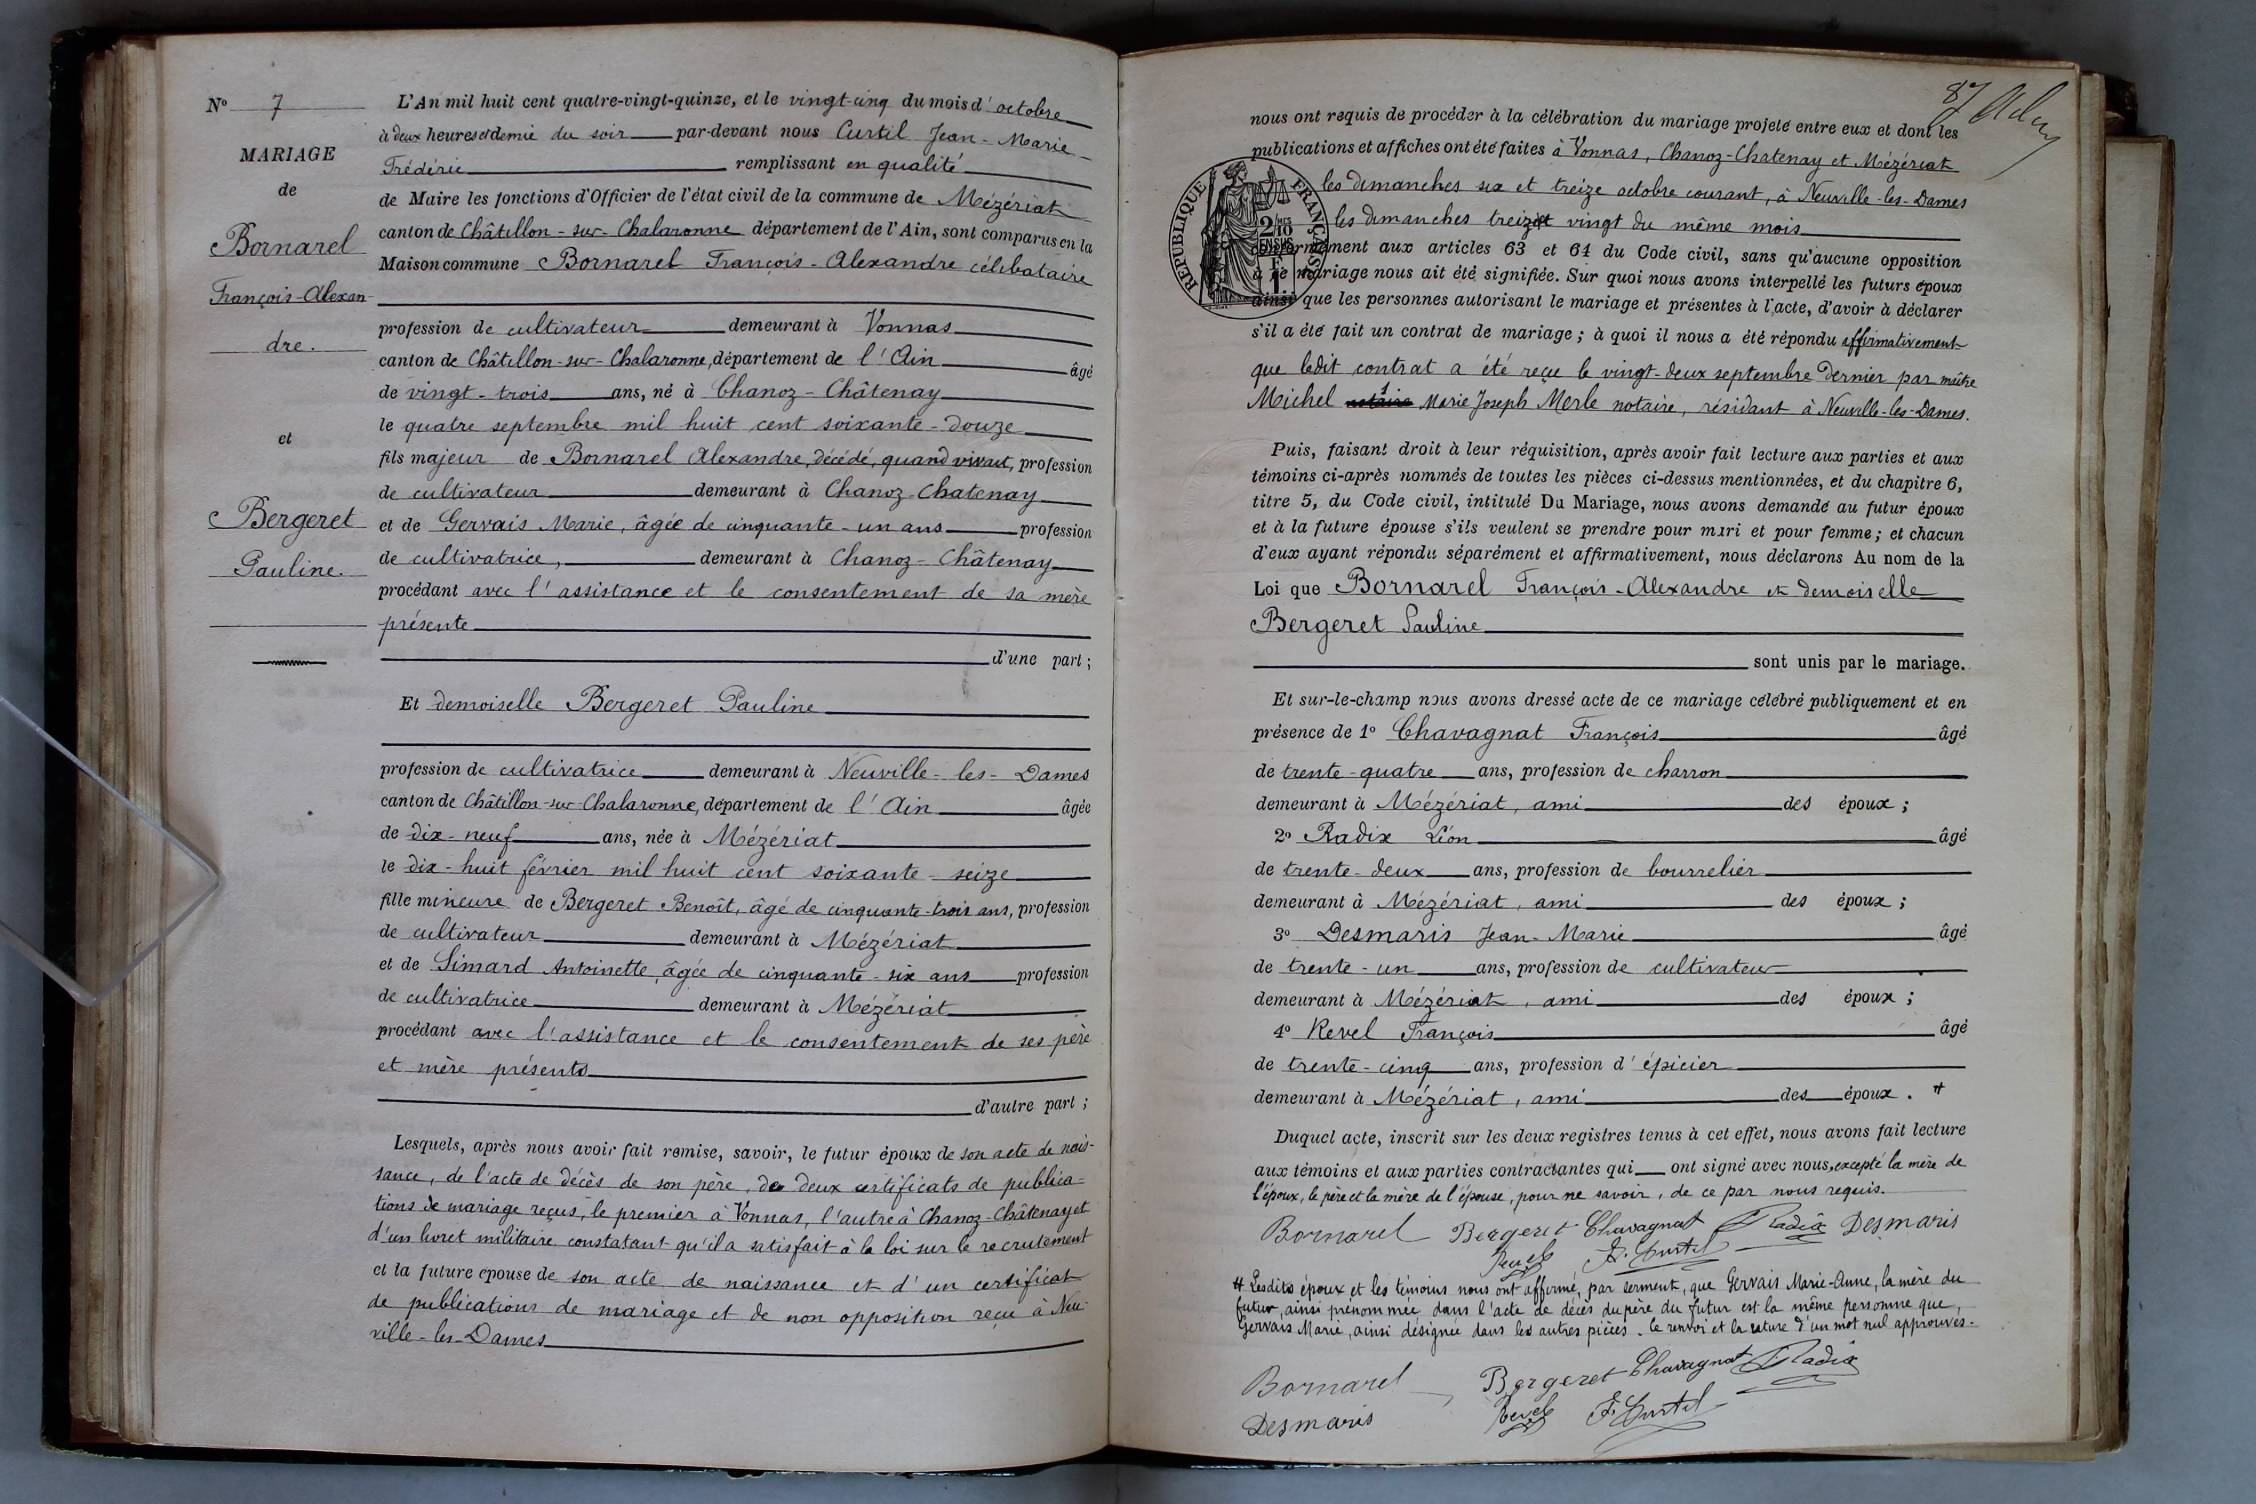 Nº 7
MARIAGE
de
Bornarel
François-Alexan-
dre.
et
Bergeret
Pauline.
L'An mil huit cent quatre-vingt-quinze, et le vingt-cinq du mois d'octobre
à deux heures et demie du soir par-devant nous Curtil Jean-Marie-
Frédéric remplissant en qualité
de Maire les fonctions d'Officier de l'état civil de la commune de Mézériat
canton de Châtillon-sur-Chalaronne département de l'Ain, sont comparus en la
Maison commune Bornarel François-Alexandre célibataire
profession de cultivateur demeurant à Vonnas
canton de Châtillon-sur-Chalaronne, département de l'Ain âgé
de vingt-trois ans, né à Chanoz-Châtenay
le quatre septembre mil huit cent soixante-douze
fils majeur de Bornarel Alexandre, décédé, quand vivait, profession
de cultivateur demeurant à Chanoz-Chatenay
et de Gervais Marie, âgée de cinquante-un ans profession
de cultivatrice, demeurant à Chanoz-Châtenay
procédant avec l'assistance et le consentement de sa mère
présente
d'une part;
Et demoiselle Bergeret Pauline
profession de cultivatrice demeurant à Neuville-les-Dames
canton de Châtillon-sur-Chalaronne, département de l'Ain âgée
de dix-neuf ans, née à Mézériat
le dix-huit février mil huit cent soixante-seize
fille mineure de Bergeret Benoît, âgé de cinquante-trois ans, profession
de cultivateur demeurant à Mézériat
et de Simard Antoinette, âgée de cinquante-six ans profession
de cultivatrice demeurant à Mézériat
procédant avec l'assistance et le consentement de ses père
et mère présents
d'autre part;
Lesquels, après nous avoir fait remise, savoir, le futur époux de son acte de nais-
sance, de l'acte de décès de son père, de deux certificats de publica-
tions de mariage reçus, le premier à Vonnas, l'autre à Chanoz-Châtenay et
d'un livret militaire constatant qu'il a satisfait à la loi sur le recrutement
et la future épouse de son acte de naissance et d'un certificat
de publications de mariage et de non opposition reçu à Neu-
ville-les-Dames
87
nous ont requis de procéder à la célébration du mariage projeté entre eux et dont les
publications et affiches ont été faites à Vonnas, Chanoz-Chatenay et Mézériat
les dimanches six et treize octobre courant, à Neuville-les-Dames
les dimanches treize et vingt du même mois
RÉPUBLIQUE FRANÇAISE
conformément aux articles 63 et 64 du Code civil, sans qu'aucune opposition
à ce mariage nous ait été signifiée. Sur quoi nous avons interpellé les futurs époux
ainsi que les personnes autorisant le mariage et présentes à l'acte, d'avoir à déclarer
s'il a été fait un contrat de mariage; à quoi il nous a été répondu affirmativement
que ledit contrat a été reçu le vingt-deux septembre dernier par maître
Michel notaire Marie Joseph Merle notaire, résidant à Neuville-les-Dames.
Puis, faisant droit à leur réquisition, après avoir fait lecture aux parties et aux
témoins ci-après nommés de toutes les pièces ci-dessus mentionnées, et du chapitre 6,
titre 5, du Code civil, intitulé Du Mariage, nous avons demandé au futur époux
et à la future épouse s'ils veulent se prendre pour mari et pour femme; et chacun
d'eux ayant répondu séparément et affirmativement, nous déclarons Au nom de la
Loi que Bornarel François-Alexandre et demoiselle
Bergeret Pauline
sont unis par le mariage.
Et sur-le-champ nous avons dressé acte de ce mariage célébré publiquement et en
présence de 1º Chavagnat François âgé
de trente-quatre ans, profession de charron
demeurant à Mézériat, ami des époux;
2º Radix Léon âgé
de trente-deux ans, profession de bourrelier
demeurant à Mézériat, ami des époux;
3º Desmaris Jean-Marie âgé
de trente-un ans, profession de cultivateur
demeurant à Mézériat, ami des époux;
4º Revel François âgé
de trente-cinq ans, profession d'épicier
demeurant à Mézériat, ami des époux. #
Duquel acte, inscrit sur les deux registres tenus à cet effet, nous avons fait lecture
aux témoins et aux parties contractantes qui ont signé avec nous, excepté la mère de
l'époux, le père et la mère de l'épouse, pour ne savoir, de ce par nous requis.
Bornarel Bergeret Chavagnat Radix Desmaris
Revel F. Curtil
# Lesdits époux et les témoins nous ont affirmé, par serment, que Gervais Marie-Anne, la mère du
futur, ainsi prénommée dans l'acte de décès du père du futur est la même personne que,
Gervais Marie, ainsi désignée dans les autres pièces. le renvoi et la rature d'un mot nul approuvés.
Bornarel Bergeret Chavagnat Radix
Desmaris Revel F. Curtil